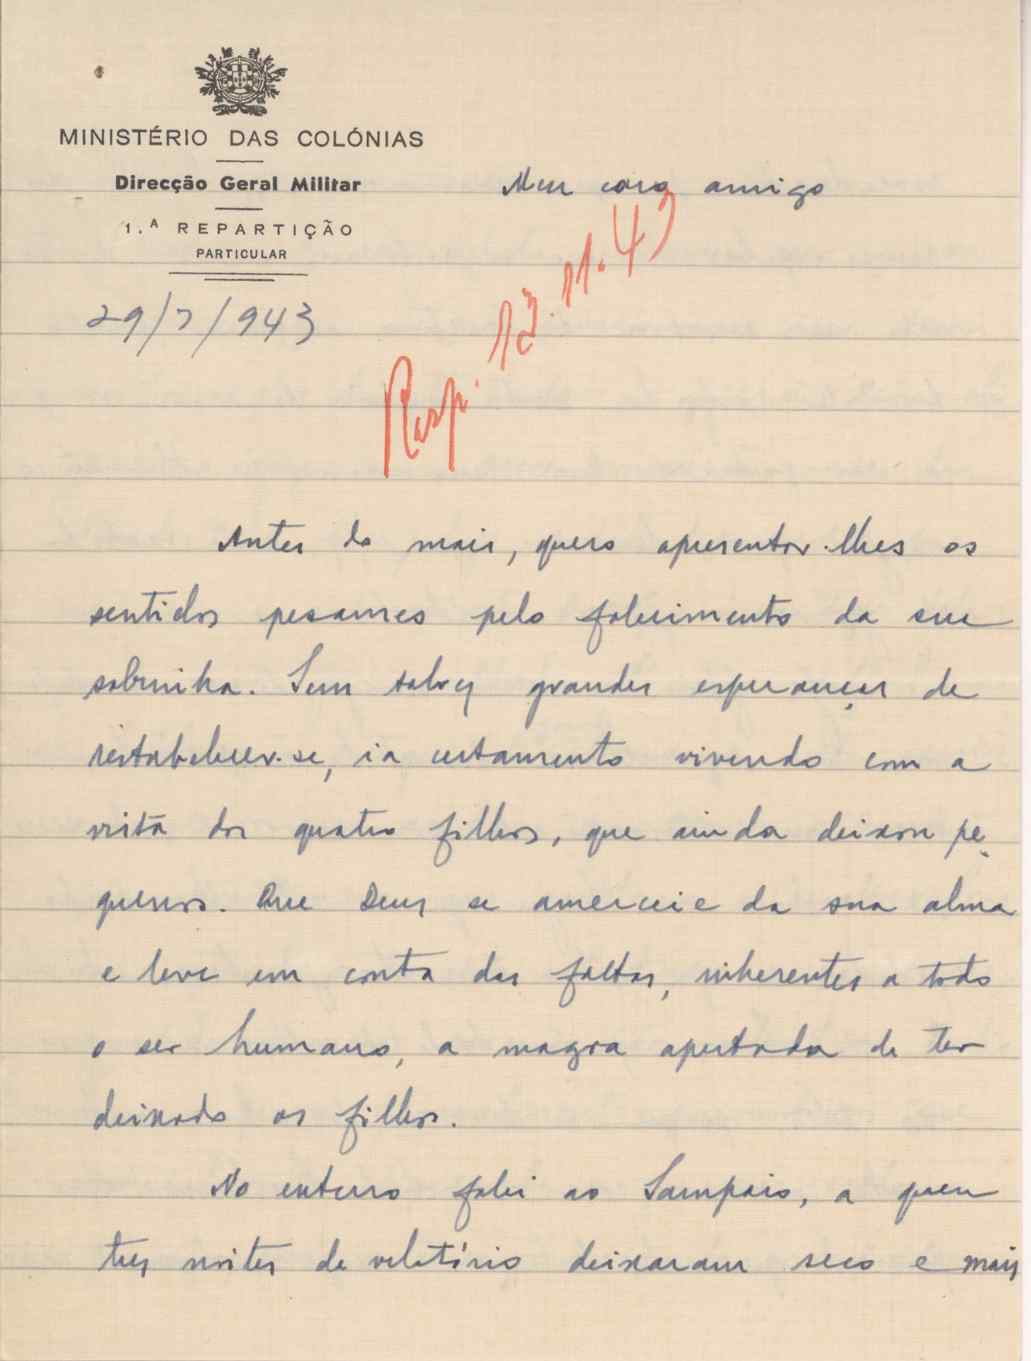 MINISTÉRIO DAS COLÓNIAS
Direcção Geral Militar
1.ª REPARTIÇÃO
PARTICULAR
29/7/943
Meu caro amigo
Resp. 12.11.43
Antes de mais, quero apresentar-lhes os
sentidos pesames pelo falecimento da sua
sobrinha. Sem talvez grandes esperanças de
restabelecer-se, ia certamente vivendo com a
vista dos quatro filhos, que ainda deixou pe-
quenos. Que Deus se amerceie da sua alma
e leve em conta das faltas, inherentes a todo
o ser humano, a magra apertada de ter
deixado os filhos.
No enterro falei ao Sampaio, a quem
tres noites de velatório deixaram seco e mais